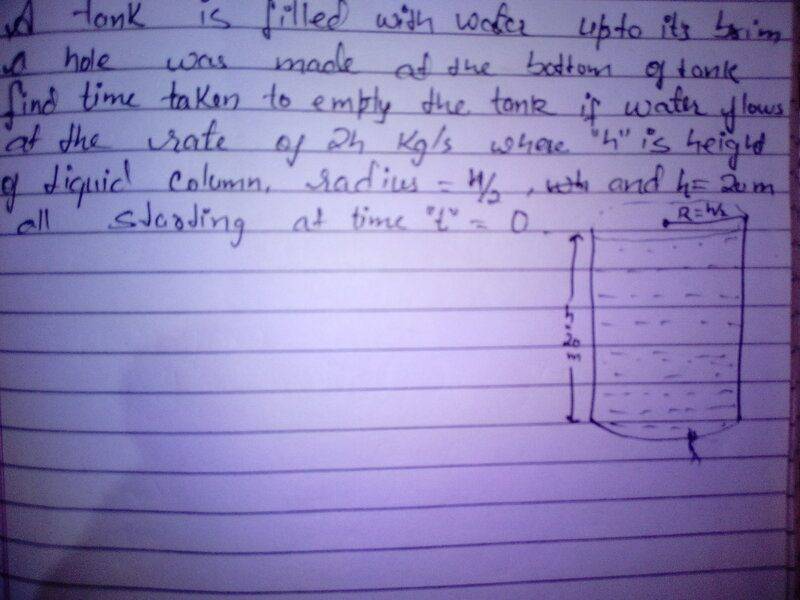 A tank is filled with water upto its brim
A hole was made at the bottom of tank
find time taken to empty the tank if water flows
at the rate of 2h Kg/s where "h" is height
of liquid column, radius = h/2, and h = 20 m
all starting at time "t" = 0.
R = h/2
h
20
m